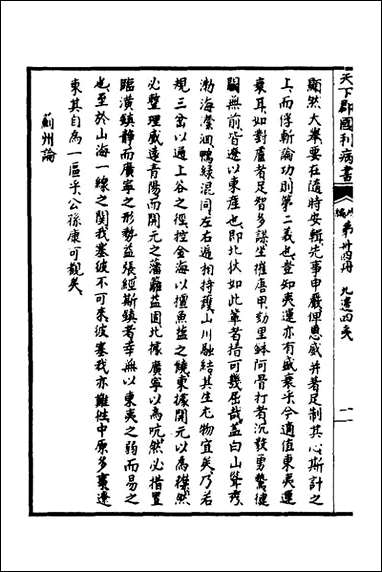 天下郡國利病書
編 第卅四冊 九邊四夷
顯然大舉要在隨時安輯先事申嚴俾恩威並著足制其心斯計之
上而俘斬論功則第二義也豈知夷運亦有盛衰乎今適值東夷運
衰耳如對盧者足智多謀坐摧唐甲劾里鉢阿骨打者沉毅勇鷙健
鬬無前皆邊以東產也即北伏如此輩者指可幾屈哉蓋白山聳秀
渤海瀠洄鴨綠混同左右遞相持護山川融結其生尤物宜矣乃若
規三岔以通上谷之徑控金海以擅魚鹽之饒東據開元以為襟然
必整理威遠青陽而開元之藩籬益固北據廣寧以為吭然必措置
臨潢鎮靜而廣寧之形勢益張經斯鎮者幸無以東夷之弱而易之
也至於山海一線之關我塞彼不可來彼塞我亦難往中原多事遼
東其自為一區乎公孫康可觀矣
薊州論